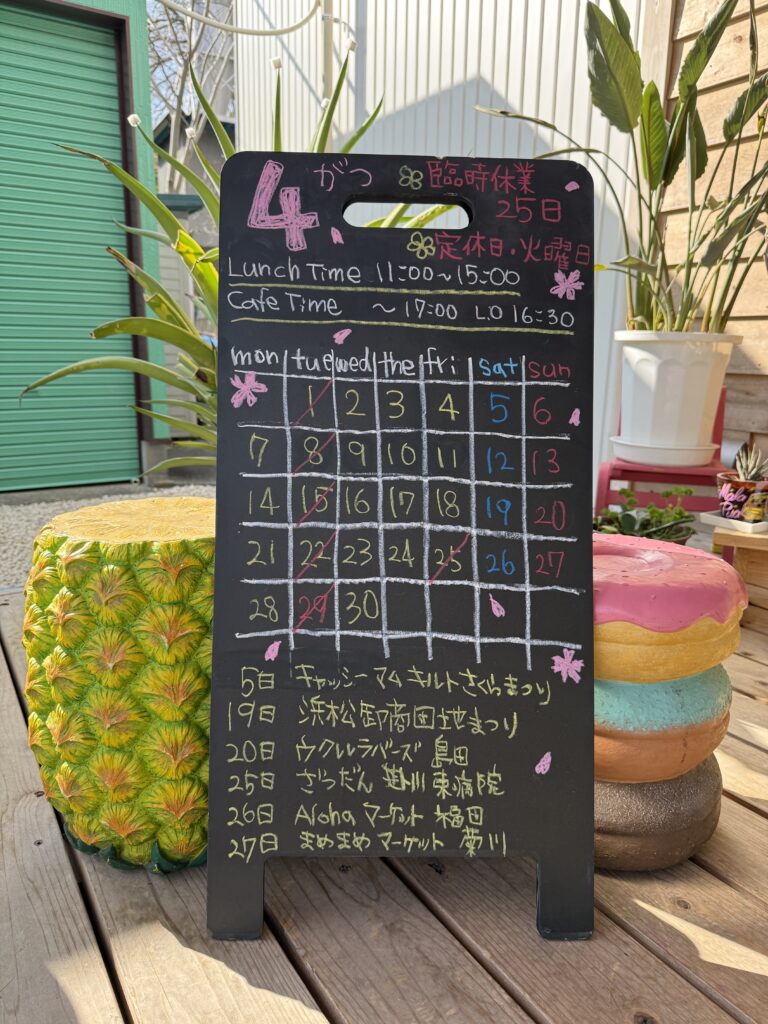 4がつ 臨時休業
25日
定休日・火曜日
Lunch Time 11:00~15:00
Cafe Time ~17:00 L.O 16:30
mon tue wed the fri sat sun
1 2 3 4 5 6
7 8 9 10 11 12 13
14 15 16 17 18 19 20
21 22 23 24 25 26 27
28 29 30
5日 キャッシーマムキルトさくらまつり
19日 浜松卸商団地まつり
20日 ウクレレラバーズ 島田
25日 ざつだん 掛川東病院
26日 Aloha マーケット 福田
27日 まめまめマーケット 菊川